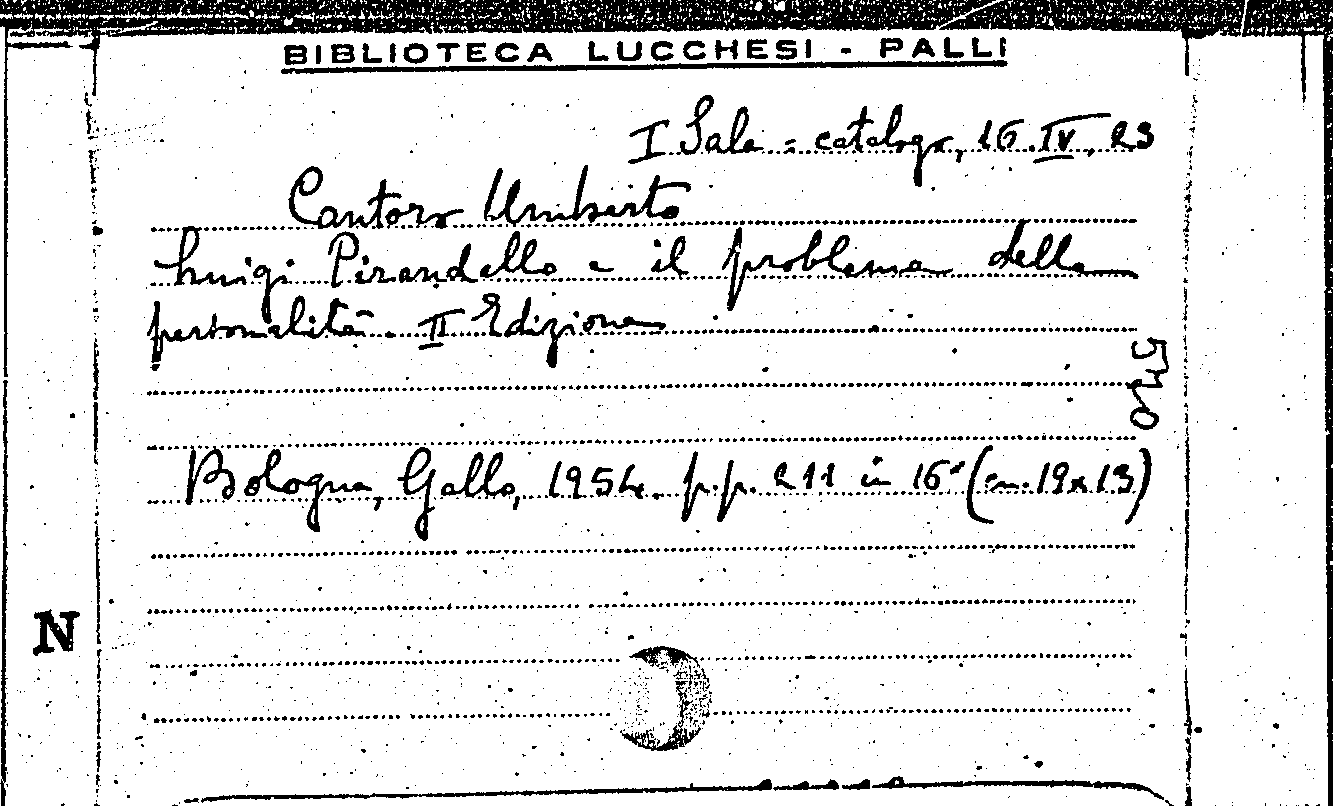 BIBLIOTECA LUCCHESI - PALLI
I Sala = catalogo, 16.IV, 23
Cantoro Umberto
Luigi Pirandello e il problema della
personalità. II Edizione
Bologna, Gallo, 1954. p.p. 211 in 16° (cm. 19x13)
N